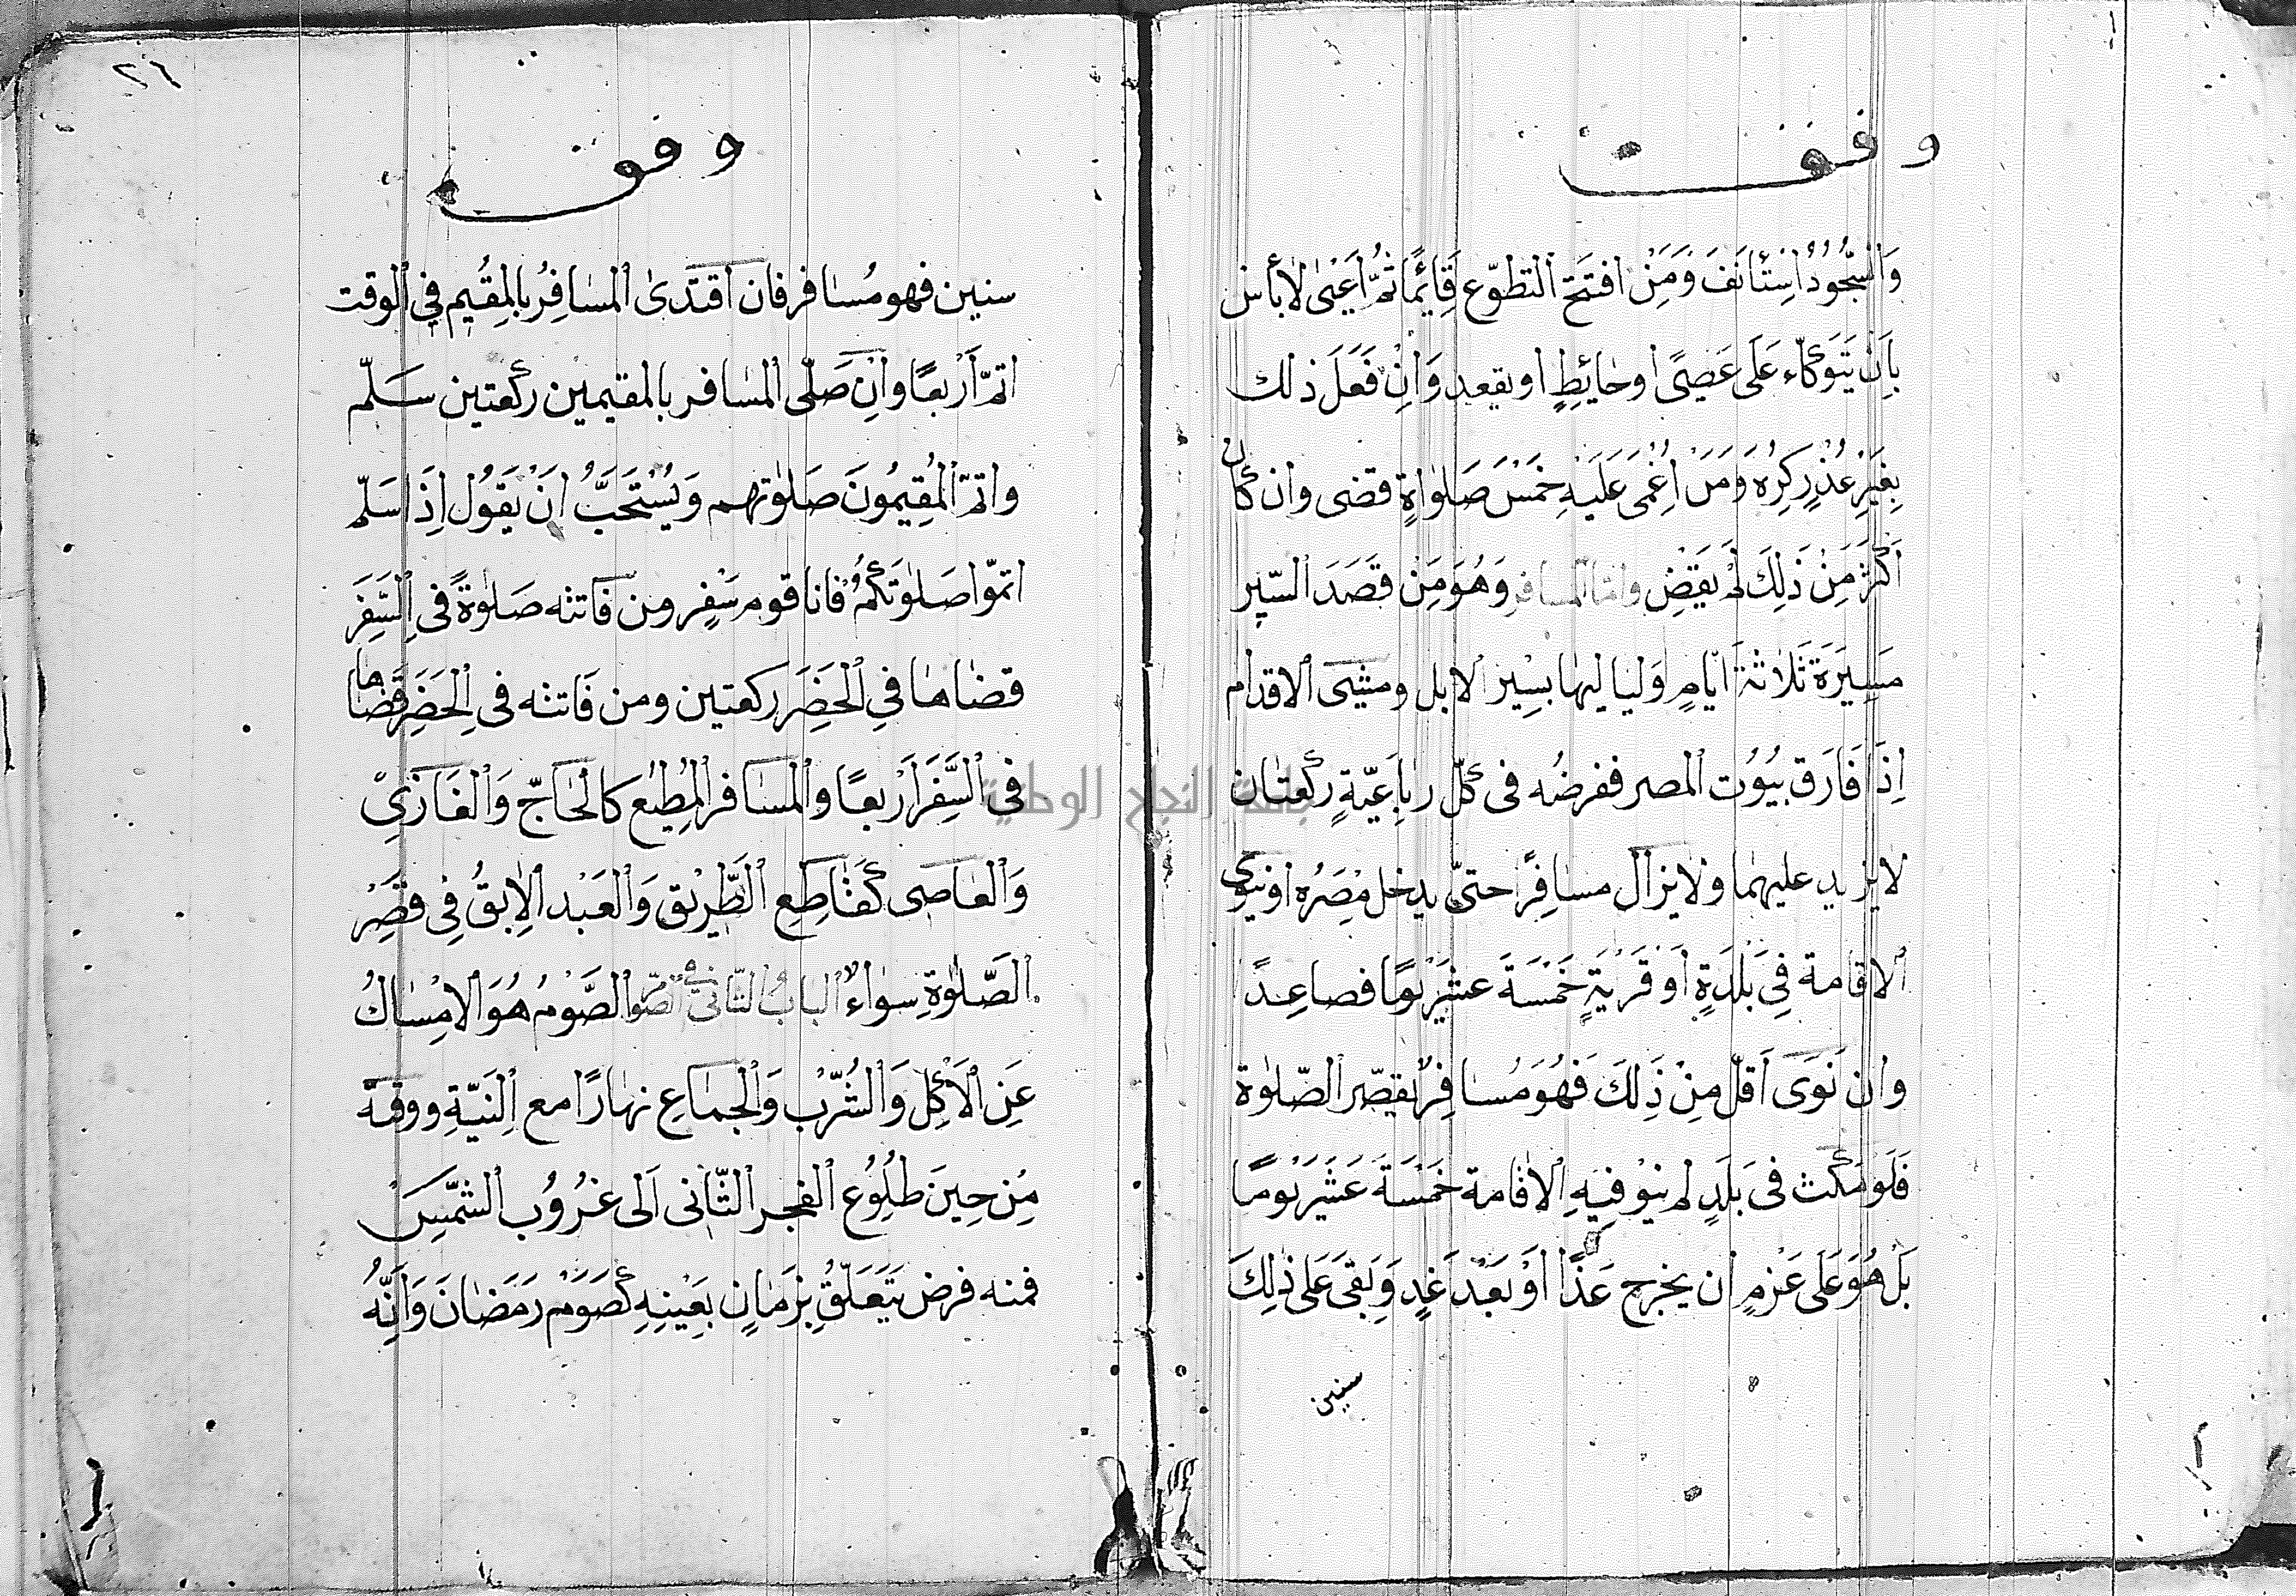 وقف
وَالسُّجُودُ اسْتَأنَفَ وَمَنْ افتَتَحَ التطوّع قَائِمًا ثُمَّ اَعْيٰى لَا بأس
بِاَنْ يَتَوَكّاء عَلَى عَصًى او حَائِطٍ او يقعد وَاِنْ فَعَلَ ذلك
بِغَيْرِ عُذْرٍ كرِه وَمَنْ اُغْمِىَ عَلَيْهِ خَمْسَ صَلَوٰاةٍ قضى وان كان
اَكْثَرَ مِنْ ذَلِكَ لَمْ يَقْضِ وامّا المسافر وَهُوَ مَنْ قَصَدَ السّير
مَسِيرَةَ ثَلَاثَةَ اَيّامٍ وَلياليهٰا بِسَيْر الابل ومشى الاقدام
اِذَا فَارَق بيُوُت المصر ففرضُه فى كلّ ربٰاعِيّةٍ رَكْعَتٰان
لا يزيد عليهمٰا ولا يزال مسافِرًا حتىّ يدخل مِصْرُه او ينوى
الاقامة فِى بَلْدَةٍ اَوْ قَرْيَةٍ خَمْسَةَ عشَرَ يَومًا فصاعِدًا
وان نَوَى اَقَلّ مِنْ ذَلِكَ فَهُوَ مُسٰافِرٌ يقصّر الصّلوٰة
فَلَوْ مَكَثَ فى بَلَدٍ لم ينو فِيْهِ الاقٰامة خَمْسَةَ عَشَرَ يَوْمًا
بَلْ هُوَ عَلَى عَزْمٍ ان يخرج غَدًا اَوْ بَعْدَ غَدٍ وَبَقىَ عَلى ذٰلِكَ
سنين
٢٦
وقف
سنين فهو مُسٰافر فان اقتَدىٰ المسٰافِرُ بالمُقِيم فِى الوقت
اتمّ اَرْبعًا وَاِن صَلّى المسٰافر بالمقيمين ركعتين سَلّم
واتمّ المُقِيمُونَ صَلٰوتهم وَيُسْتَحَبُّ اَنْ يَقُول اِذَا سَلّم
اتمّوا صَلٰوتَكُمْ فانا قوم سَفْر ومن فَاتته صَلٰوةً فى السَّفَرِ
قضٰاهٰا فِى الحَضَرِ ركعتين ومن فَاتته فى الحَضَرِ قَضٰاها
فى السَّفَرِ اَرْبعًا والمسَافر المُطِيْع كالحَاجّ وَالغَازِىْ
وَالعٰاصى كَقٰاطِعِ الطّرِيْق وَالعَبْد الاٰبقُ فِى قصْرِ
الصَّلٰوةِ سواءٌ البابُ الثّانى فى الصّوم الصَّوْمُ هُوَ الامْسٰاكُ
عَنِ الْاَكْلِ وَالشُّرْبِ وَالجمَاعِ نهٰارًا مع النيّةِ ووقته
مِنْ حِينَ طلُوُع الفجر الثّانى اَلى غرُوُب الشّمْسِ
فمنه فرض يَتَعَلّقُ بزَمَانٍ بعَيْنِهِ كَصَوْم رَمَضٰانَ وَاَنّهُ
جامعة النجاح الوطنية